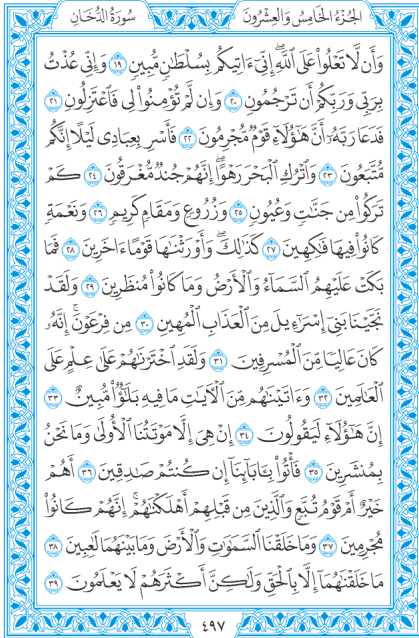 سُورَةُ الدُّخَانِ الجُزْءُ الخَامِسُ وَالعِشْرُونَ
وَأَن لَّا تَعْلُوا۟ عَلَى ٱللَّهِ ۖ إِنِّىٓ ءَاتِيكُم بِسُلْطَٰنٍ مُّبِينٍ ١٩ وَإِنِّى عُذْتُ
بِرَبِّى وَرَبِّكُمْ أَن تَرْجُمُونِ ٢٠ وَإِن لَّمْ تُؤْمِنُوا۟ لِى فَٱعْتَزِلُونِ ٢١
فَدَعَا رَبَّهُۥٓ أَنَّ هَٰٓؤُلَآءِ قَوْمٌ مُّجْرِمُونَ ٢٢ فَأَسْرِ بِعِبَادِى لَيْلًا إِنَّكُم
مُّتَّبَعُونَ ٢٣ وَٱتْرُكِ ٱلْبَحْرَ رَهْوًا ۖ إِنَّهُمْ جُندٌ مُّغْرَقُونَ ٢٤ كَمْ
تَرَكُوا۟ مِن جَنَّٰتٍ وَعُيُونٍ ٢٥ وَزُرُوعٍ وَمَقَامٍ كَرِيمٍ ٢٦ وَنَعْمَةٍ
كَانُوا۟ فِيهَا فَٰكِهِينَ ٢٧ كَذَٰلِكَ ۖ وَأَوْرَثْنَٰهَا قَوْمًا ءَاخَرِينَ ٢٨ فَمَا
بَكَتْ عَلَيْهِمُ ٱلسَّمَآءُ وَٱلْأَرْضُ وَمَا كَانُوا۟ مُنظَرِينَ ٢٩ وَلَقَدْ
نَجَّيْنَا بَنِىٓ إِسْرَٰٓءِيلَ مِنَ ٱلْعَذَابِ ٱلْمُهِينِ ٣٠ مِن فِرْعَوْنَ ۚ إِنَّهُۥ
كَانَ عَالِيًا مِّنَ ٱلْمُسْرِفِينَ ٣١ وَلَقَدِ ٱخْتَرْنَٰهُمْ عَلَىٰ عِلْمٍ عَلَى
ٱلْعَٰلَمِينَ ٣٢ وَءَاتَيْنَٰهُم مِّنَ ٱلْءَايَٰتِ مَا فِيهِ بَلَٰٓؤٌا۟ مُّبِينٌ ٣٣
إِنَّ هَٰٓؤُلَآءِ لَيَقُولُونَ ٣٤ إِنْ هِىَ إِلَّا مَوْتَتُنَا ٱلْأُولَىٰ وَمَا نَحْنُ
بِمُنشَرِينَ ٣٥ فَأْتُوا۟ بِـَٔابَآئِنَآ إِن كُنتُمْ صَٰدِقِينَ ٣٦ أَهُمْ
خَيْرٌ أَمْ قَوْمُ تُبَّعٍ وَٱلَّذِينَ مِن قَبْلِهِمْ ۚ أَهْلَكْنَٰهُمْ ۖ إِنَّهُمْ كَانُوا۟
مُجْرِمِينَ ٣٧ وَمَا خَلَقْنَا ٱلسَّمَٰوَٰتِ وَٱلْأَرْضَ وَمَا بَيْنَهُمَا لَٰعِبِينَ ٣٨
مَا خَلَقْنَٰهُمَآ إِلَّا بِٱلْحَقِّ وَلَٰكِنَّ أَكْثَرَهُمْ لَا يَعْلَمُونَ ٣٩
٤٩٧